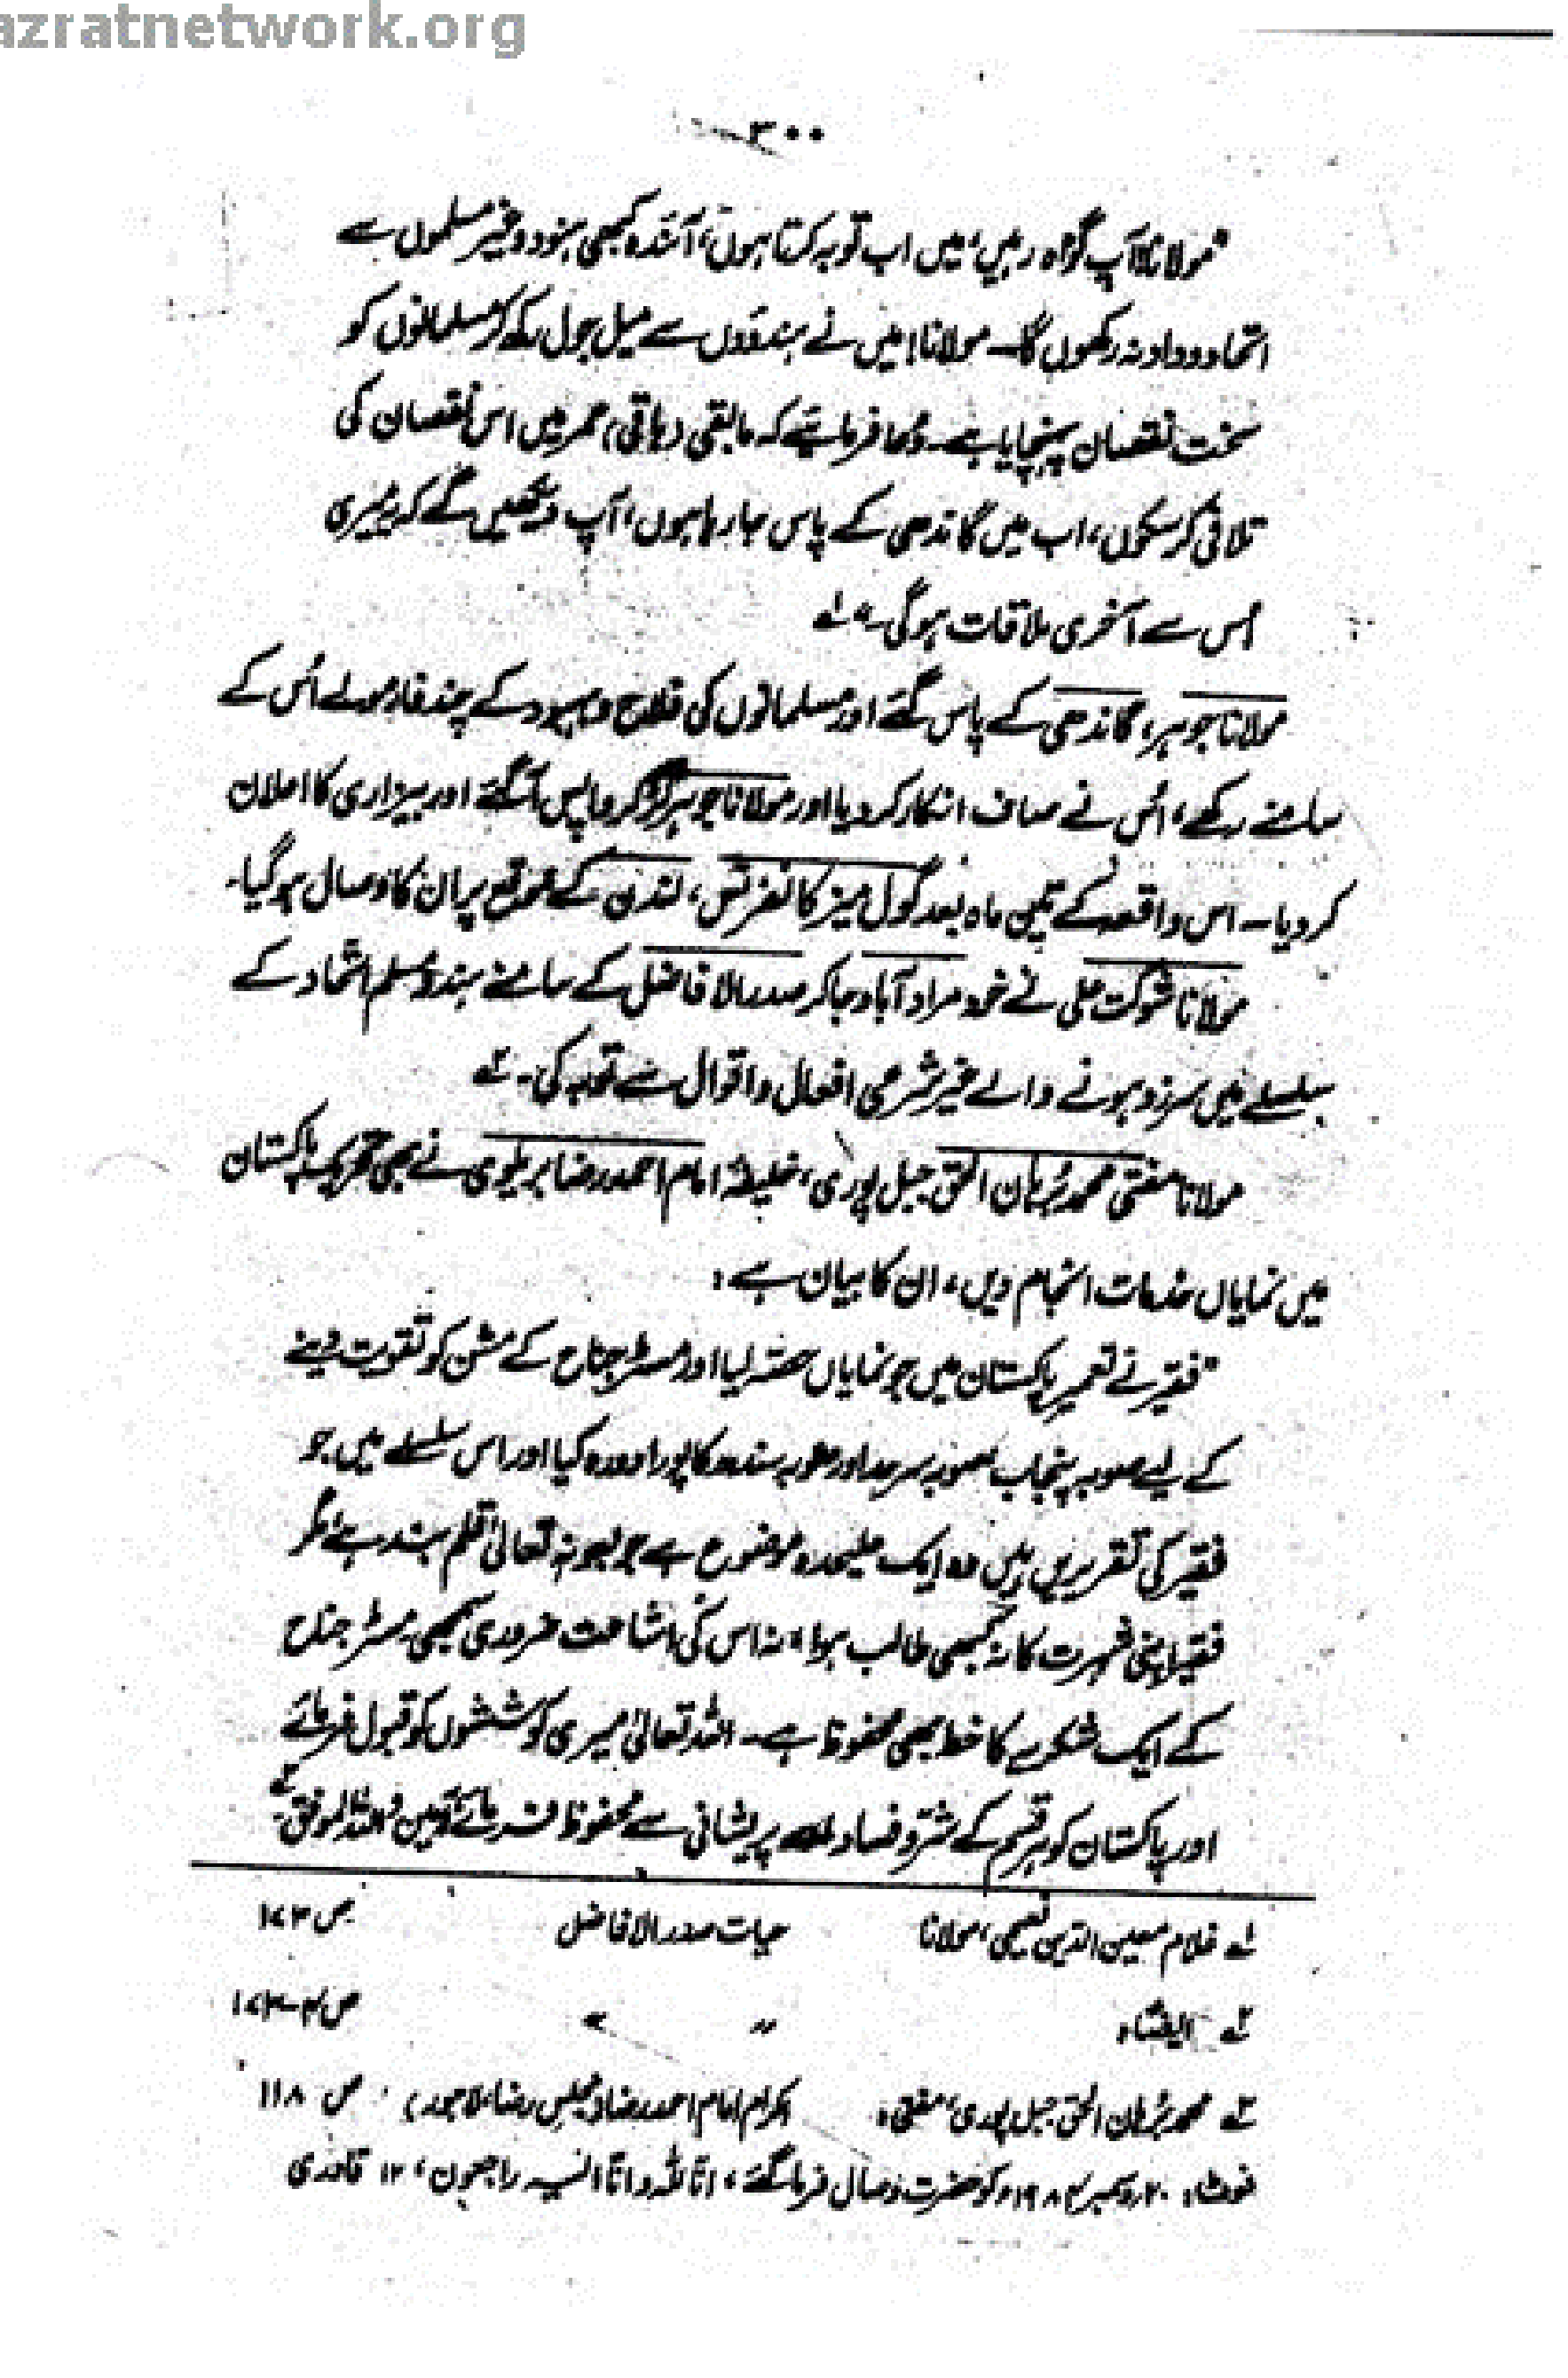 azratnetwork.org
۳۰۰
"مولانا! آپ گواہ رہیں، میں اب توبہ کرتا ہوں، آئندہ کبھی ہنود و غیر مسلموں سے
اتحاد و وداد نہ رکھوں گا۔ مولانا! میں نے ہندوؤں سے میل جول رکھ کر مسلمانوں کو
سخت نقصان پہنچایا ہے۔ دُعا فرمائیے کہ مابقی (باقی) عمر میں اس نقصان کی
تلافی کر سکوں، اب میں گاندھی کے پاس جا رہا ہوں، آپ دیکھیں گے کہ یہ میری
اُس سے آخری ملاقات ہو گی۔" لے
مولانا جوہر، گاندھی کے پاس گئے اور مسلمانوں کی فلاح و بہبود کے چند فارمولے اُس کے
سامنے رکھے، اُس نے صاف انکار کر دیا اور مولانا جوہر کر واپس آ گئے اور بیزاری کا اعلان
کر دیا۔ اس واقعہ کے تین ماہ بعد گول میز کانفرنس، لندن کے موقع پر ان کا وصال ہو گیا۔
مولانا شوکت علی نے خود مراد آباد جا کر صدر الافاضل کے سامنے ہندو مسلم اتحاد کے
سلسلے میں سرزد ہونے والے غیر شرعی افعال و اقوال سے توبہ کی۔ ۲ے
مولانا مفتی محمد بُرہان الحق جبل پوری، خلیفۂ امام احمد رضا بریلوی نے بھی تحریک پاکستان
میں نمایاں خدمات انجام دیں، ان کا بیان ہے:
"فقیر نے تعمیر پاکستان میں جو نمایاں حصہ لیا اور مسٹر جناح کے مشن کو تقویت دینے
کے لیے صوبہ پنجاب صوبہ سرحد اور صوبہ سندھ کا پورا دورہ کیا اور اس سلسلے میں جو
فقیر کی تقریریں ہیں وہ ایک علیحدہ موضوع ہے جو بعونہٖ تعالیٰ قلم بند ہے، مگر
فقیر اپنی شہرت کا نہ کبھی طالب ہوا، نہ اس کی اشاعت ضروری سمجھی۔ مسٹر جناح
کے ایک شکریے کا خط بھی محفوظ ہے۔ اللہ تعالیٰ میری کوششوں کو قبول فرمائے
اور پاکستان کو ہر قسم کے شر و فساد پریشانی سے محفوظ فرمائے آمین واللہ الموفق۔ ۳ے
لے غلام معین الدین نعیمی، مولانا حیات صدر الافاضل ص ۱۷۳
۲ے ایضاً: " "
۳ے محمد بُرہان الحق جبل پوری، مفتی: اکرام امام احمد رضا (مجلس رضا، لاہور) ص ۱۱۸
نوٹ: ۲۰ دسمبر ۱۹۸۴ء کو حضرت وصال فرما گئے، انا للہ وانا الیہ راجعون، ۱۲ قادری